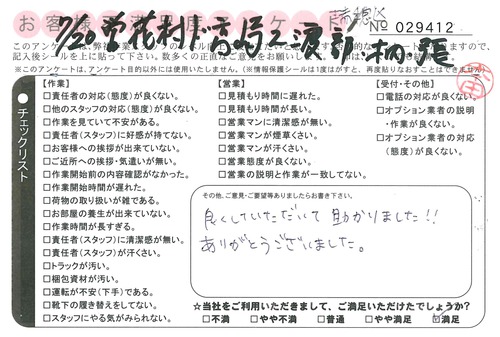 お客様
No 029412
このアンケー
記入後シールを上に貼って下さい。
(※このアンケートは、アンケート目的以外には使用いたしません。(※情報保護シールは1度はがすと、再度貼りなおすことはできません。)
チェックリスト
【作業】
□責任者の対応(態度)が良くない。
□他のスタッフの対応(態度)が良くない。
□作業を見ていて不安がある。
□責任者(スタッフ)に好感が持てない。
□お客様への挨拶が出来ていない。
□ご近所への挨拶・気遣いが無い。
□作業開始前の内容確認がなかった。
□作業開始時間が遅れた。
□荷物の取り扱いが雑である。
□お部屋の養生が出来ていない。
□作業時間が長すぎる。
□責任者(スタッフ)に清潔感が無い。
□責任者(スタッフ)が汗くさい。
□トラックが汚い。
□梱包資材が汚い。
□運転が不安(下手)である。
□靴下の履き替えをしてない。
□スタッフにやる気がみられない。
【営業】
□見積もり時間に遅れた。
□見積もり時間が長い。
□営業マンに清潔感が無い。
□営業マンが煙草くさい。
□営業マンが汗くさい。
□営業態度が良くない。
□営業の説明と作業が一致してない。
【受付・その他】
□電話の対応が良くない。
□オプション業者の説明
・作業が良くない。
□オプション業者の対応
(態度)が良くない。
その他、ご意見・ご要望等ありましたらお書き下さい。
良くしていただいて 助かりました!!
ありがとうございました。
☆当社をご利用いただきまして、ご満足いただけたでしょうか?
□不満 □やや不満 □普通 □やや満足 ☑満足